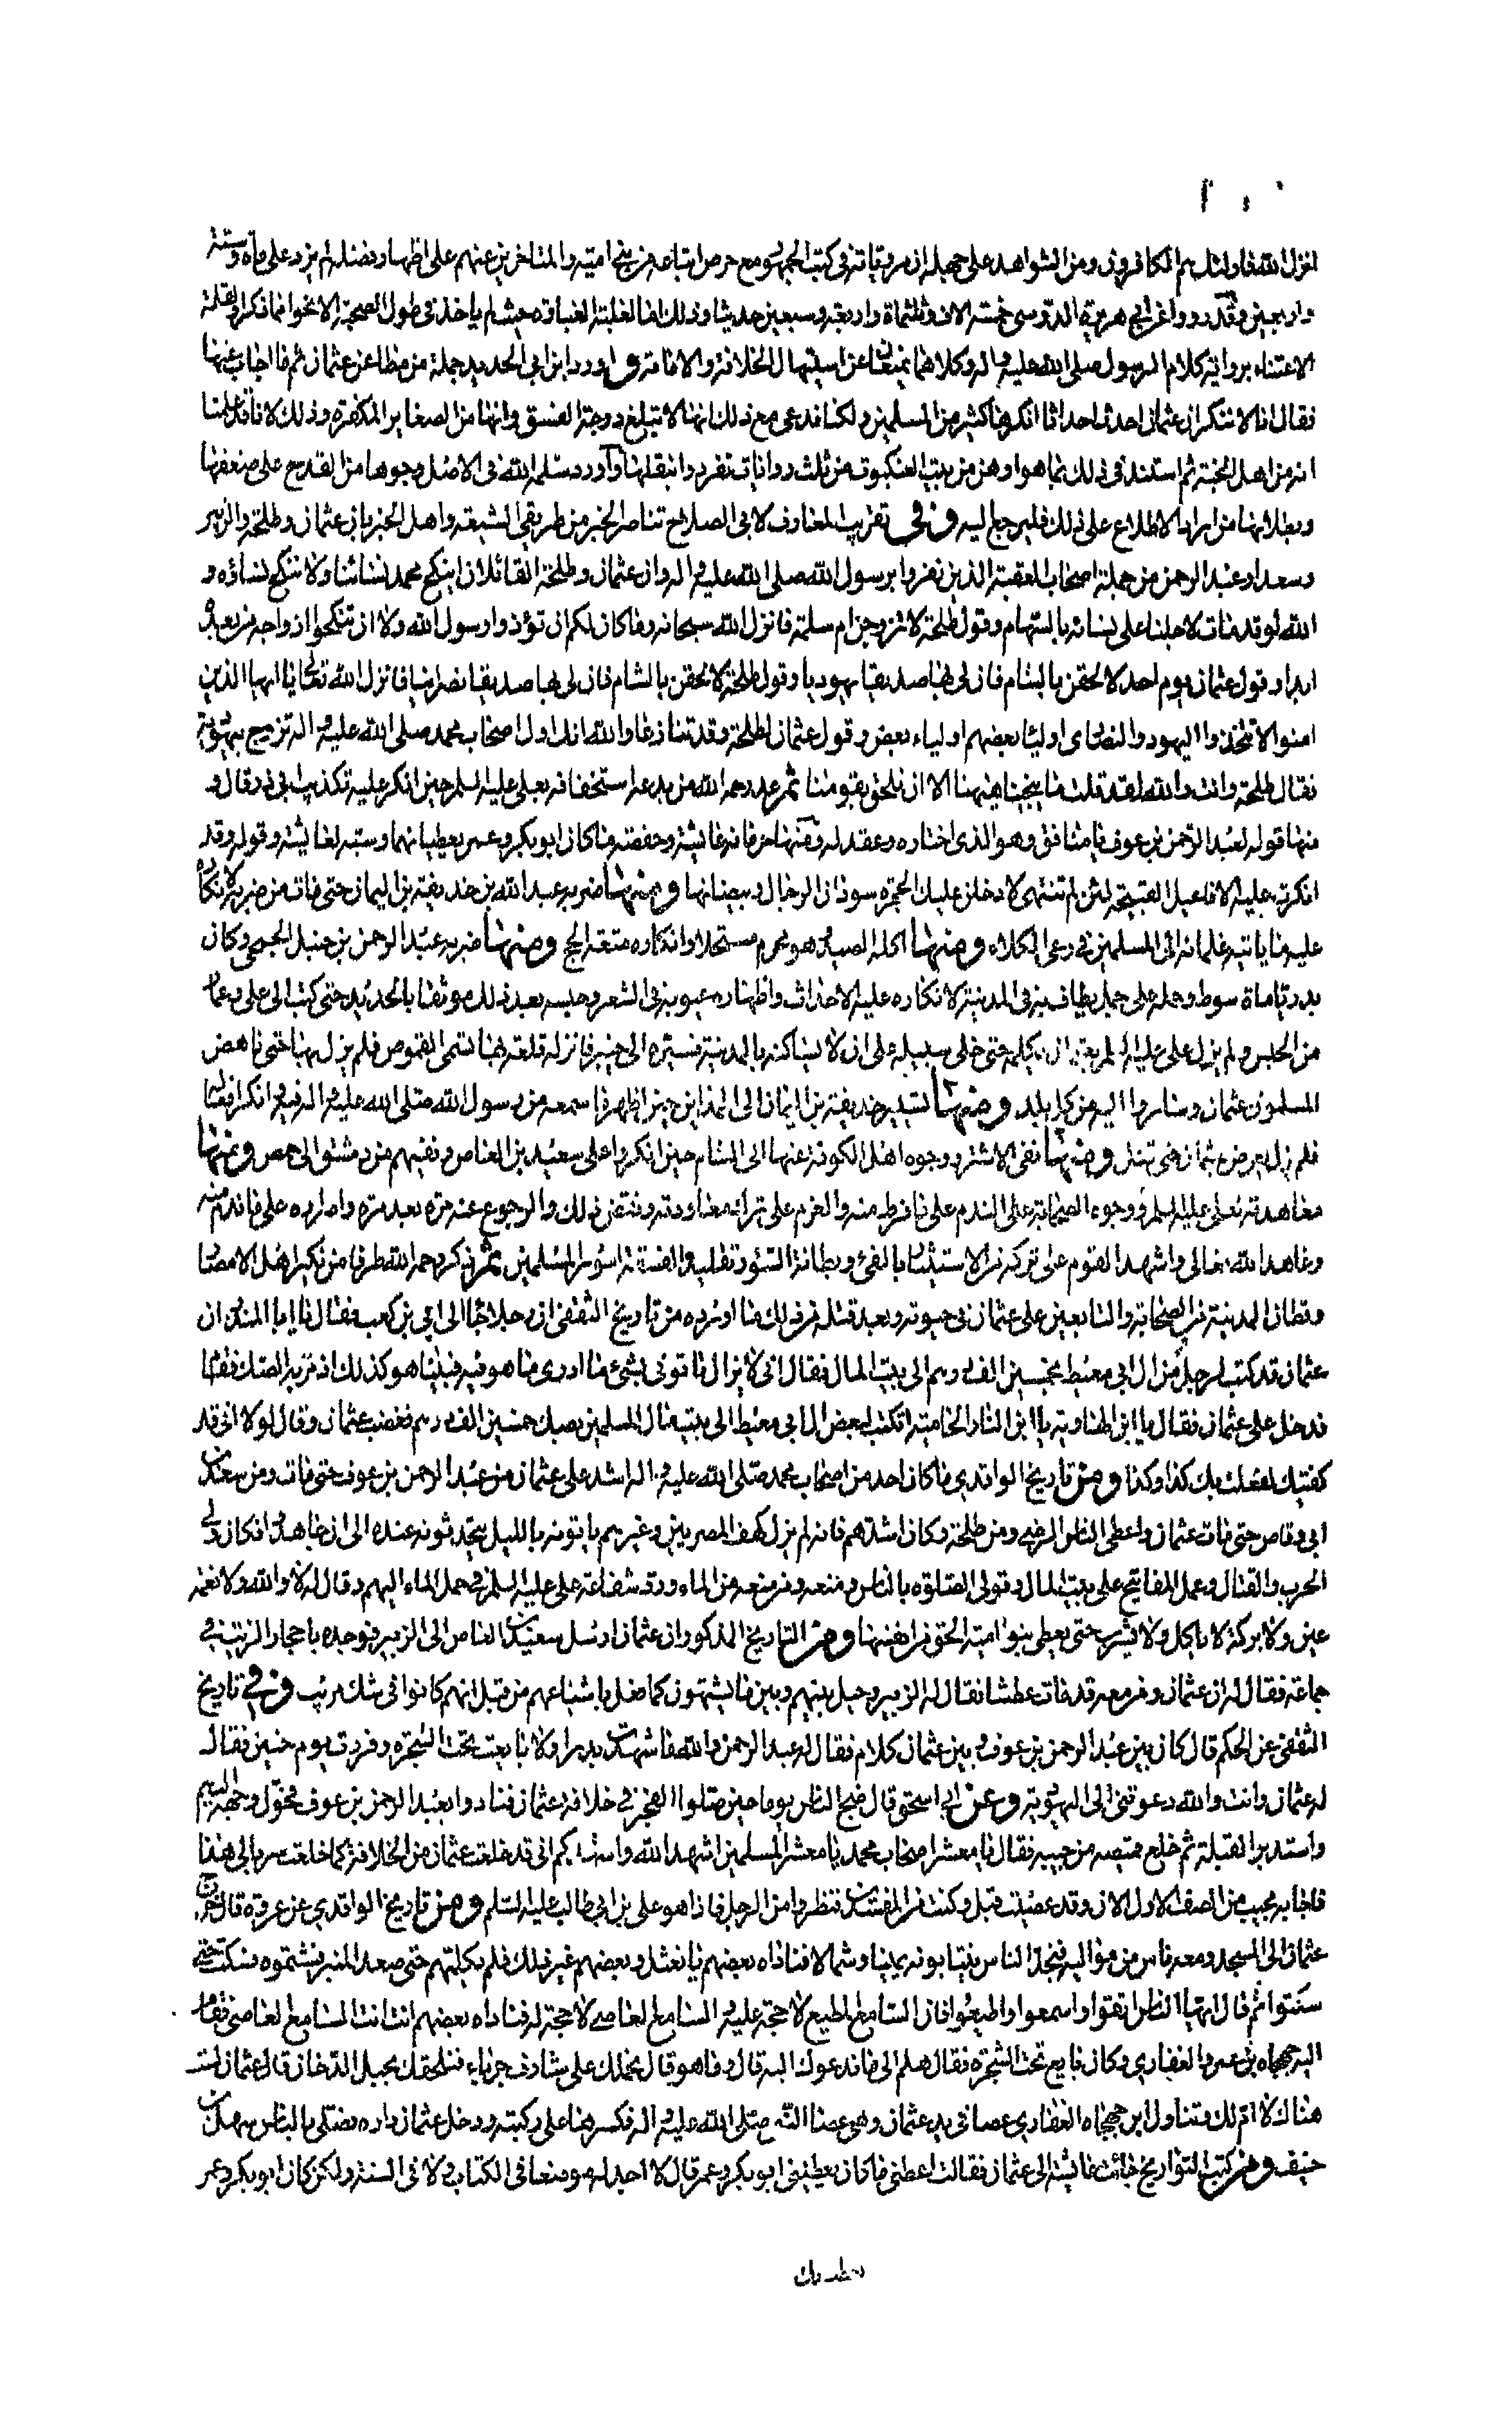 انزل الله فاولئك هم الكافرون ومن الشواهد على جهله ان مروياته في كتب الجمهور مع حرص اتباعه من بني امية والمتاخرين عنهم على اظهار فضله لم يزد على مأة وستة
واربعين وقد رووا عن ابي هريرة الدوسي خمسة الاف وثلثمأة واربعة وسبعين حديثا وذلك اما لغلبة الغباوة حيث لم ياخذ في طول الصحبة الا نحوا مما ذكر او لقلة
الاعتناء برواية كلام الرسول صلى الله عليه واله وكلاهما يمنعان عن استيهال الخلافة والامامة واورد ابن ابي الحديد جملة من مطاعن عثمان ثم اجاب عنها
فقال انا لا ننكر ان عثمان احدث احداثا انكرها كثير من المسلمين ولكنا ندعي مع ذلك انها لا تبلغ درجة الفسق وانها من الصغاير المكفرة وذلك لانا قد علمنا
انه من اهل الجنة ثم استند في ذلك بما هو اوهن من بيت العنكبوت من ثلث روايات تفردوا بنقلها واورد سلمه الله في الاصل وجوها من القدح على ضعفها
وبطلانها من اراد الاطلاع على ذلك فليرجع اليه وفي تقريب المعارف لابي الصلاح تناصر الخبر من طريقي الشيعة واهل الخبر بان عثمان وطلحة والزبير
وسعدا وعبد الرحمن من جملة اصحاب العقبة الذين نفروا برسول الله صلى الله عليه واله وان عثمان وطلحة القائلان اينكح محمد نسائنا ولا ننكح نساؤه و
الله لو قد مات لاجلنا على نسائه بالسهام وقول طلحة لاتزوجن ام سلمة فانزل الله سبحانه وما كان لكم ان تؤذوا رسول الله ولا ان تنكحوا ازواجه من بعده
ابدا وقول عثمان يوم احد لالحقن بالشام فان لي بها صديقا يهوديا وقول طلحة لالحقن بالشام فان لي بها صديقا نصرانيا فانزل الله تعالى يا ايها الذين
امنوا لا تتخذوا اليهود والنصارى اولياء بعضهم اولياء بعض وقول عثمان لطلحة وقد تنازعا والله انك اول اصحاب محمد صلى الله عليه واله تزوج بيهودية
فقال طلحة وانت والله لقد قلت ما يحبنا هيهنا الا ان نلحق بقومنا ثم عد رحمه الله من بدعه استخفافه بعلي عليه السلم حين انكر عليه تكذيب ابي ذر قال و
منها قوله لعبد الرحمن بن عوف يا منافق وهو الذي اختاره وعقد له ومنها حرمانه عايشة وحفصة ما كان ابو بكر وعمر يعطيانهما وسبه لعايشة وقوله وقد
انكرت عليه الافاعيل القبيحة لئن لم تنتهي لادخلن عليك الحجرة سودان الرجال وبيضانها ومنها ضربه عبد الله بن حذيفة بن اليمان حتى مات من ضربه لانكاره
عليه ما ياتيه غلمانه الى المسلمين في رعي الكلاء ومنها اكله الصيد وهو محرم مستحلا وانكاره متعة الحج ومنها ضربه عبد الرحمن بن حنبل الجمحي وكان
بدريا مأة سوط وحمله على جمل يطاف به في المدينة لانكاره عليه الاحداث واظهاره عيوبه في الشعر وحبسه بعد ذلك موثقا بالحديد حتى كتب الى علي وعمار
من الحبس ولم يزل علي عليه السلم بعثمان يكلمه حتى خلى سبيله على ان لا يساكنه بالمدينة فسيره الى خيبر فانزله قلعة بها تسمى القموص فلم يزل بها حتى ناهض
المسلمون عثمان وساروا اليه من كل بلد ومنها تسيير حذيفة بن اليمان الى المداين حين اظهر ما سمعه من رسول الله صلى الله عليه واله فيه وانكر افعاله
فلم يزل يعرض بعثمان حتى قتل ومنها نفي الاشتر ووجوه اهل الكوفة عنها الى الشام حين انكروا على سعيد بن العاص ونفيهم من دمشق الى حمص ومنها
معاهدته لعلي عليه السلم ووجوه الصحابة على الندم على ما فرط منه والعزم على ترك معاودته ونقض ذلك والرجوع عنه مرة بعد مرة واصراره على ما ندم منه
وعاهد الله تعالى واشهد القوم على تركه من الاستيثار بالفئ وبطانة السوء وتقليد الفسقة اسور المسلمين ثم ذكر رحمه الله طرفا من نكير اهل الامصار
وقطان المدينة من الصحابة والتابعين على عثمان في حيوته وبعد قتله فمن ذلك ما اورده من تاريخ الثقفي ان رجلا جاء الى ابي بن كعب فقال يا ابا المنذر ان
عثمان قد كتب لرجل من ال ابي معيط بخمسين الف درهم الى بيت المال فقال ابي لا يزال ياتوني بشئ ما ادري ما هو فيه فبينا هو كذلك اذ مر به الصك فقام
فدخل على عثمان فقال يا ابن الهاوية يا ابن النار الحامية اتكتب لبعض ال ابي معيط الى بيت مال المسلمين بصك خمسين الف درهم فغضب عثمان وقال لولا اني قد
كفيتك لفعلت بك كذا وكذا ومن تاريخ الواقدي ما كان احد من اصحاب محمد صلى الله عليه واله اشد على عثمان من عبد الرحمن بن عوف حتى مات ومن سعد بن
ابي وقاص حتى مات عثمان واعطى الناس الرضى ومن طلحة وكان اشدهم فانه لم يزل كهف المصريين وغيرهم ياتونه بالليل يتحدثون عنده الى ان جاهدوا فكان ولي
الحرب والقتال وعمل المفاتيح على بيت المال وتولى الصلوة بالناس ومنعه ومن معه من الماء ورد شفاعة علي عليه السلم في حمل الماء اليهم وقال له لا والله ولا نعمة
عين ولا بركة لا ياكل ولا يشرب حتى يعطي بنوا امية الحق من انفسها ومن التاريخ المذكور ان عثمان ارسل سعيد بن العاص الى الزبير فوجده باحجار الزيت في
جماعة فقال له ان عثمان ومن معه قد مات عطشا فقال له الزبير وحيل بينهم وبين ما يشتهون كما فعل باشياعهم من قبل انهم كانوا في شك مريب وفي تاريخ
الثقفي عن الحكم قال كان بين عبد الرحمن بن عوف وبين عثمان كلام فقال له عبد الرحمن والله ما شهدت بدرا ولا بايعت تحت الشجرة وفررت يوم حنين فقال
له عثمان وانت والله دعوتني الى اليهودية وعن ابي اسحق قال ضج الناس يوما حين صلوا الفجر في خلافة عثمان فنادوا بعبد الرحمن بن عوف فحول وجهه اليهم
واستدبر القبلة ثم خلع قميصه من جيبه فقال يا معشر اصحاب محمد يا معشر المسلمين اشهد الله واشهدكم اني قد خلعت عثمان من الخلافة كما خلعت سربالي هذا
فاجابه مجيب من الصف الاول الان وقد عصيت قبل وكنت من المفسدين فنظروا من الرجل فاذا هو علي بن ابي طالب عليه السلم ومن تاريخ الواقدي عن عروة قال خرج
عثمان الى المسجد ومعه ناس من مواليه فنجد الناس ينتابونه يمينا وشمالا فناداه بعضهم يا نعثل وبعضهم غير ذلك فلم يكلمهم حتى صعد المنبر فشتموه فسكت حتى
سكتوا ثم قال ايها الناس اتقوا واسمعوا واطيعوا فان السامع المطيع لا حجة عليه والسامع العاصي لا حجة له فناداه بعضهم انت انت السامع العاصي فقام
اليه جهجاه بن عمرو الغفاري وكان بايع تحت الشجرة فقال هلم الى ما ندعوك اليه قال وما هو قال نحملك على شارف جرباء فنلحقك بجبل الدخان قال عثمان لست
هناك لا ام لك وتناول ابن جهجاه الغفاري عصا في يد عثمان وهي عصا النبي صلى الله عليه واله فكسرها على ركبته ودخل عثمان داره فصلى بالناس سهل بن
حنيف ومن كتب التواريخ جائت عايشة الى عثمان فقالت اعطني ما كان يعطيني ابو بكر وعمر قال لا اجد له موضعا في الكتاب ولا في السنة ولكن كان ابو بكر وعمر